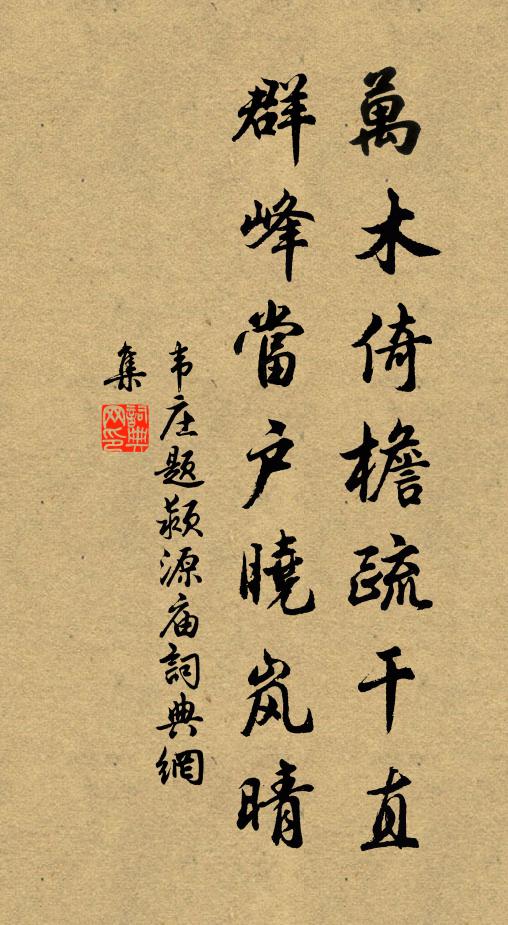 萬木倚檐疏干直
群峰當户曉岚晴
韦庄题颍源庙詞典網
集
詞典网印